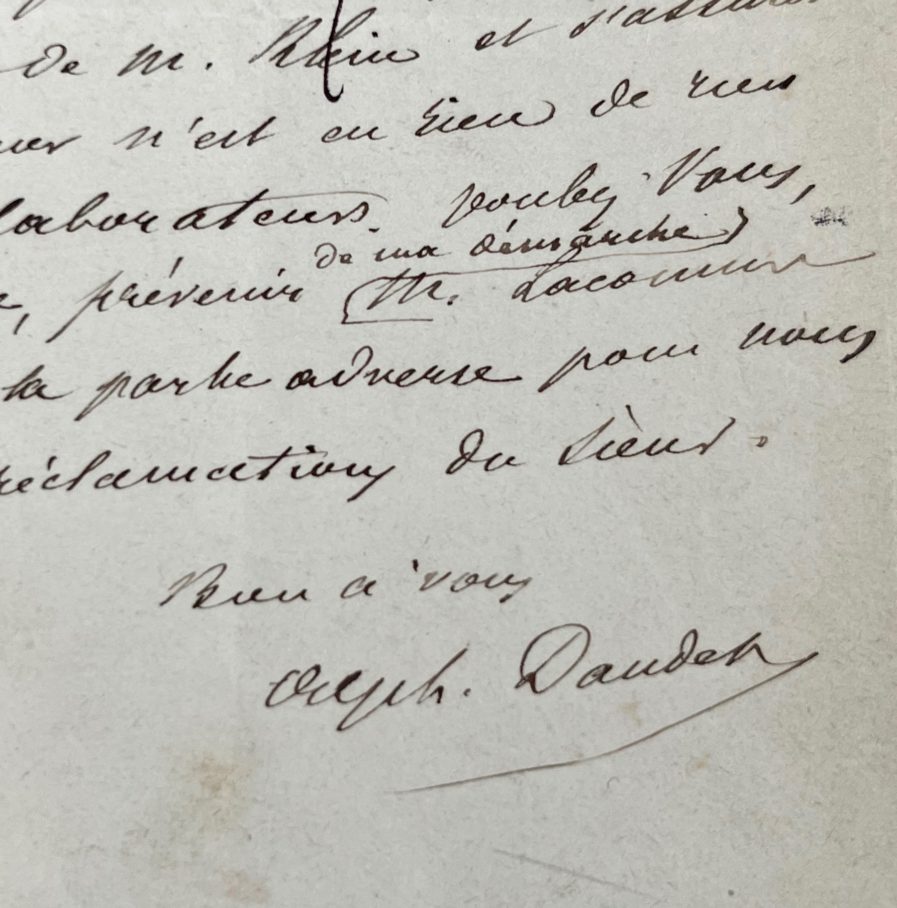 de M. Klein et s'assurer
n'est en rien de rien
laborateurs. voulez vous,
de ma démarche
prévenir M.
la partie adverse pour nous
réclamations du sieur.
Bien à vous
Alph. Daudet